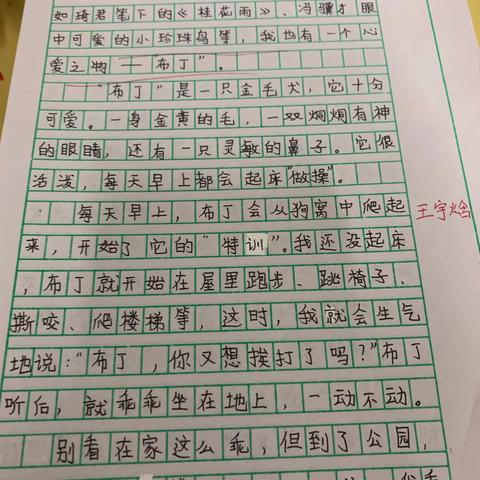 如琦君笔下的《桂花雨》、冯骥才眼
中可爱的小珍珠鸟等，我也有一个心
爱之物——“布丁”。
“布丁”是一只金毛犬，它十分
可爱。一身金黄的毛，一双炯炯有神
的眼睛，还有一只灵敏的鼻子。它很
活泼，每天早上都会起床“做操”。
每天早上，布丁会从狗窝中爬起
王宇焓
来，开始了它的“特训”。我还没起床
，布丁就开始在屋里跑步、跳椅子、
撕咬、爬楼梯等，这时，我就会生气
地说：“布丁，你又想挨打了吗？”布丁
听后，就乖乖坐在地上，一动不动。
别看在家这么乖，但到了公园，